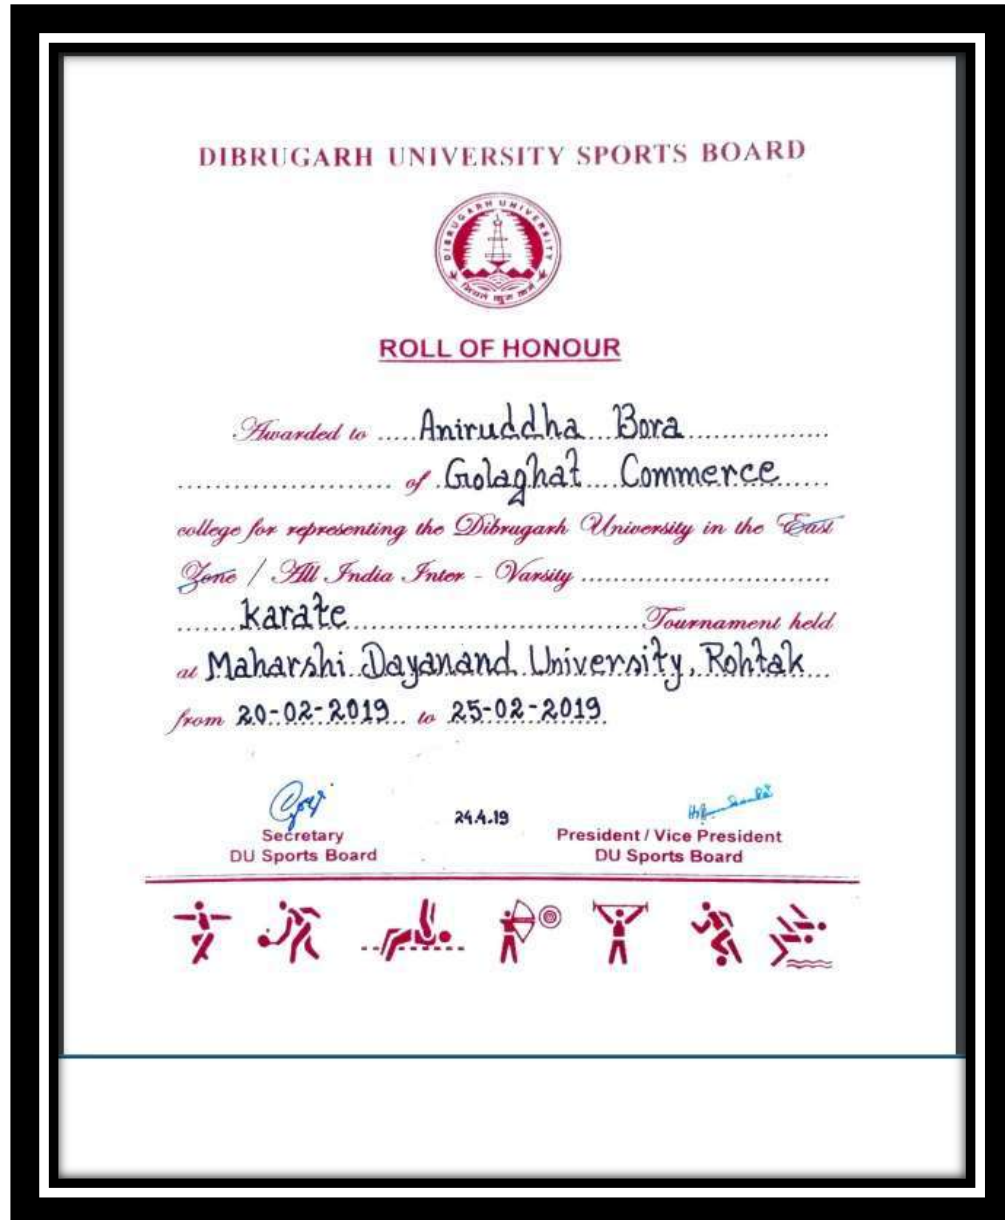 DIBRUGARH UNIVERSITY SPORTS BOARD
DIBRUGARH UNIVERSITY
ROLL OF HONOUR
Awarded to ..... Aniruddha Bora
of Golaghat Commerce
college for representing the Dibrugarh University in the East
Zone / All India Inter - Varsity
karate Tournament held
at Maharshi Dayanand University, Rohtak
from 20-02-2019 to 25-02-2019
24.4.19
Secretary
DU Sports Board
President / Vice President
DU Sports Board